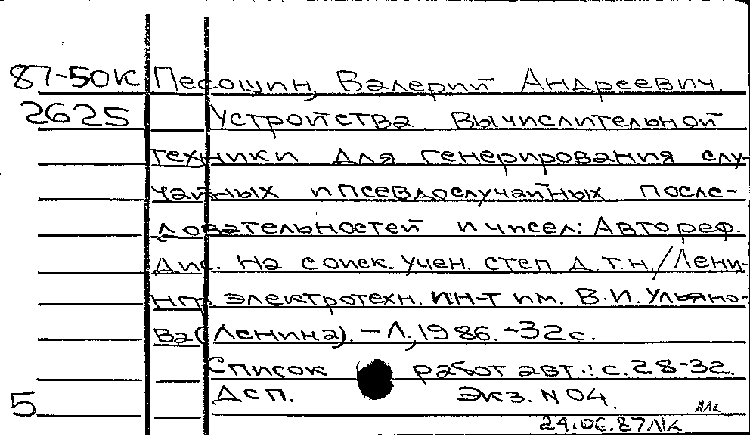 87-50К Песошин, Валерий Андреевич.
2625 Устройства вычислительной
техники для генерирования слу-
чайных и псевдослучайных после-
довательностей и чисел: Автореф.
Дис. на соиск. учен. степ д.т.н/Лени-
нгр. электротехн. ин-т им. В.И. Ульяно-
ва (Ленина). - Л, 1986. - 32 с.
Список работ авт.: с. 28-32.
Дсп. Экз. N 04.
5
24.06.87